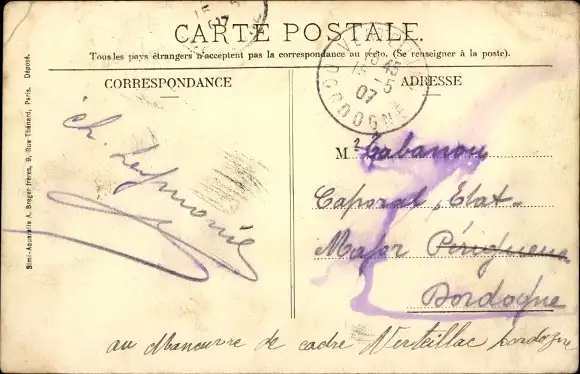 CARTE POSTALE.
Tous les pays étrangers n'acceptent pas la correspondance au recto. (Se renseigner à la poste).
CORRESPONDANCE
ADRESSE
15
07
15 - 5
07
DORDOGNE
Simi-Aquarelle A. Breger frères, 9, Rue Thénard, Paris. Déposé.
Ch. Leymonie
M. Cabanou
Caporal, Etat-
Major Périgueux
Dordogne
au Manœuvre de cadre Verteillac Dordogne